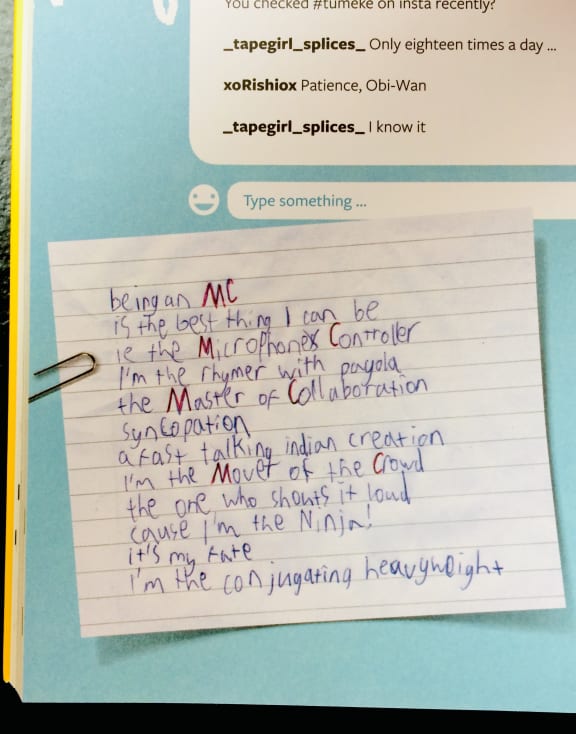 You checked #tumeke on insta recently?
_tapegirl_splices_ Only eighteen times a day ...
xoRishiox Patience, Obi-Wan
_tapegirl_splices_ I know it
Type something ...
being an MC
is the best thing I can be
ie the Microphone Controller
I'm the rhymer with payola
the Master of Collaboration
syncopation
a fast talking indian creation
I'm the Mover of the Crowd
the one who shouts it loud
cause I'm the Ninja!
it's my fate
I'm the conjugating heavyweight